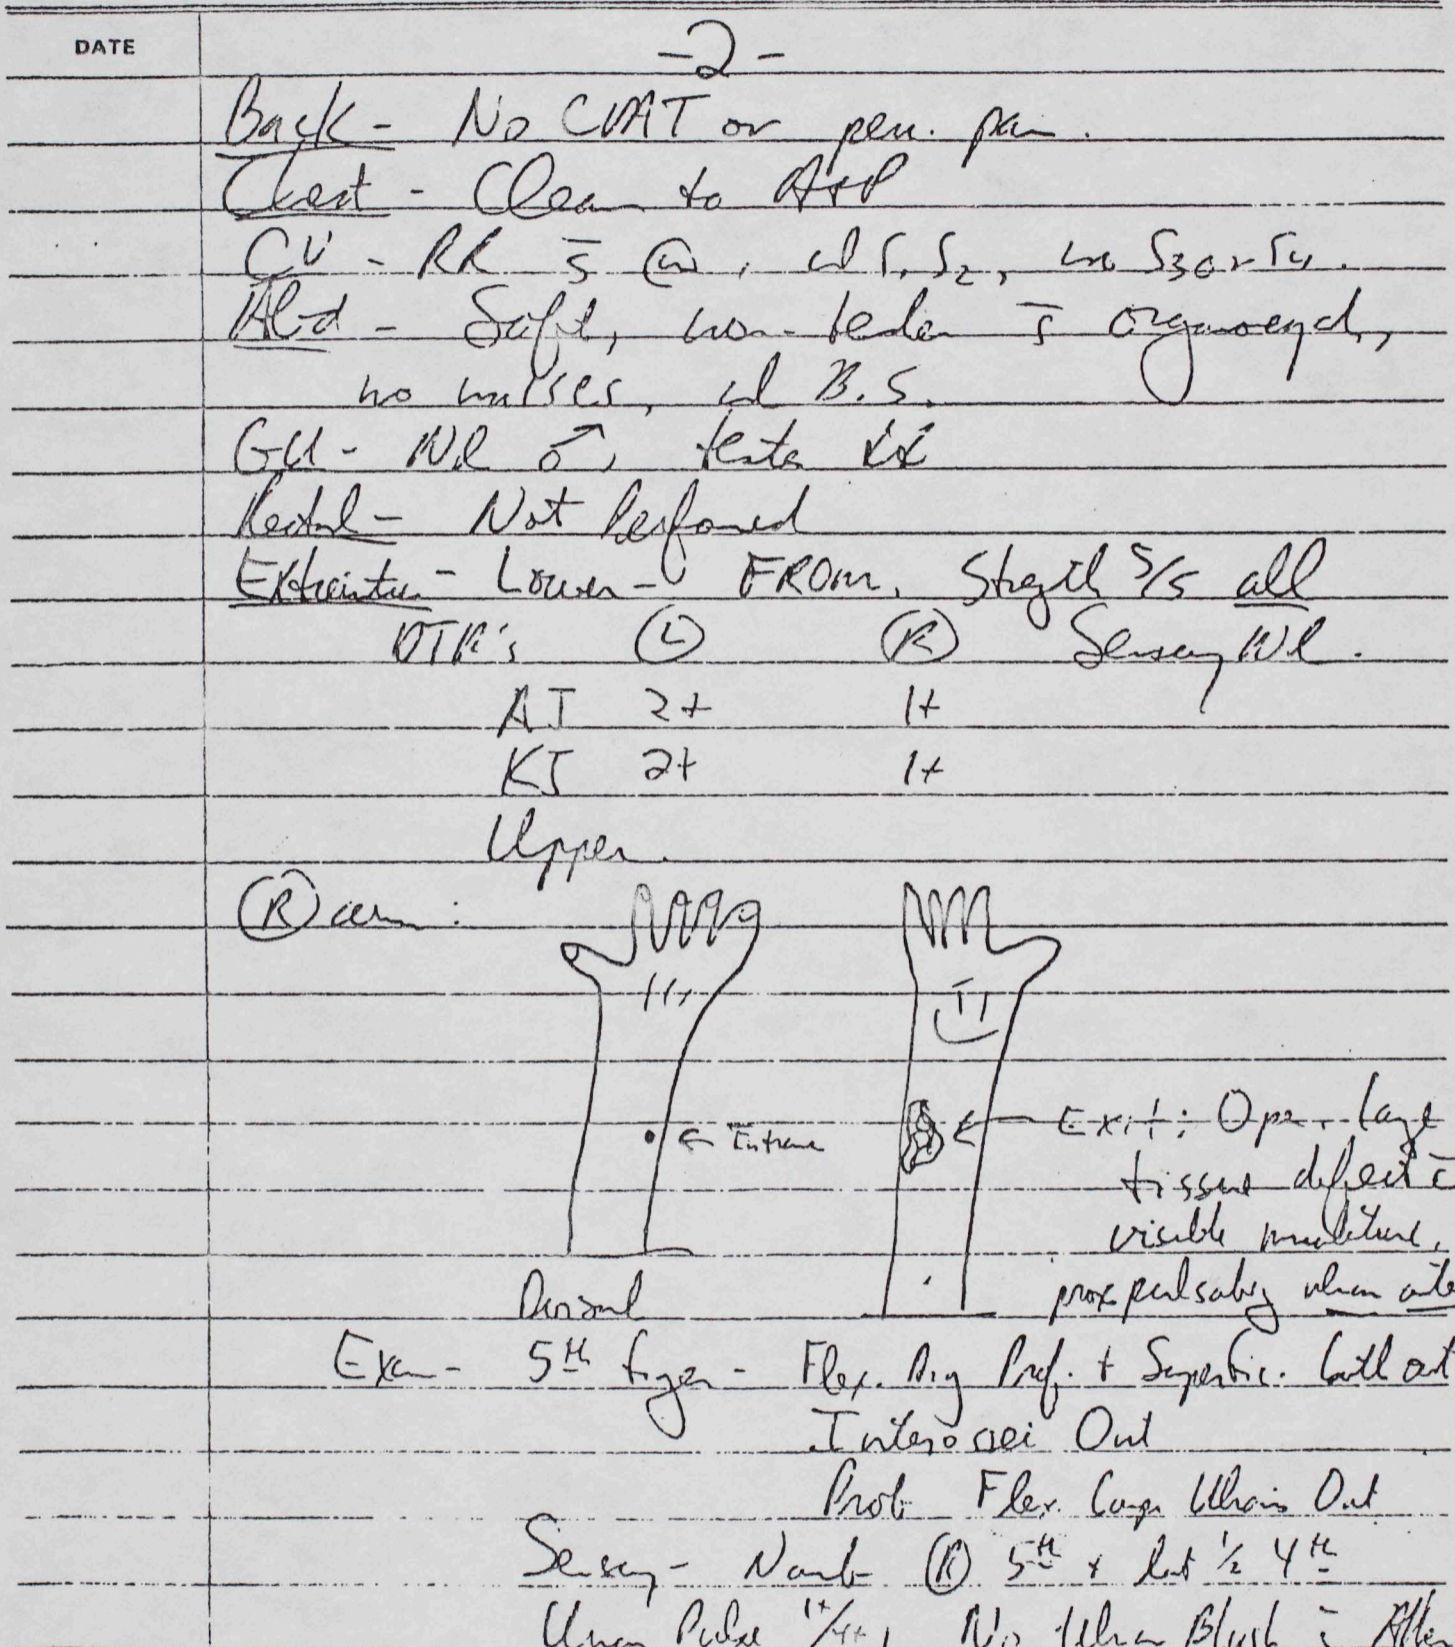 DATE
-2-
Back - No CVAT or per. pain.
Chest - Clear to A+P
CV - RR s̄ (m), nl S1 S2, no S3 or S4.
Abd - Soft, non-tender s̄ organomegaly,
no masses, nl B.S.
GU - Nl ♂, testes ↓↓
Rectal - Not Performed
Extremities - Lower - FROM, Strength 5/5 all
DTR's (L) (R) Sensory Nl.
AJ 2+ 1+
KJ 2+ 1+
Upper.
(R) arm:
← Entrance
← Exit: Open, large
tissue defect c̄
visible musculature,
prox pulsating ulnar
Dorsal
Exam - 5th finger - Flex. Dig Prof. + Superfic. both out
Interossei Out
Prob Flex. Carpi Ulnaris Out
Sensory - Numb (R) 5th + lat ½ 4th
Ulnar Pulse 1+/4+, No Ulnar Blush c̄